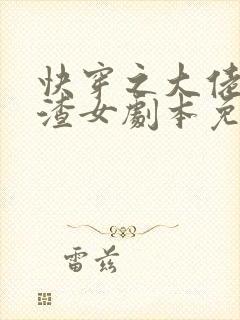 快穿之大佬
渣女劇本免
雷兹